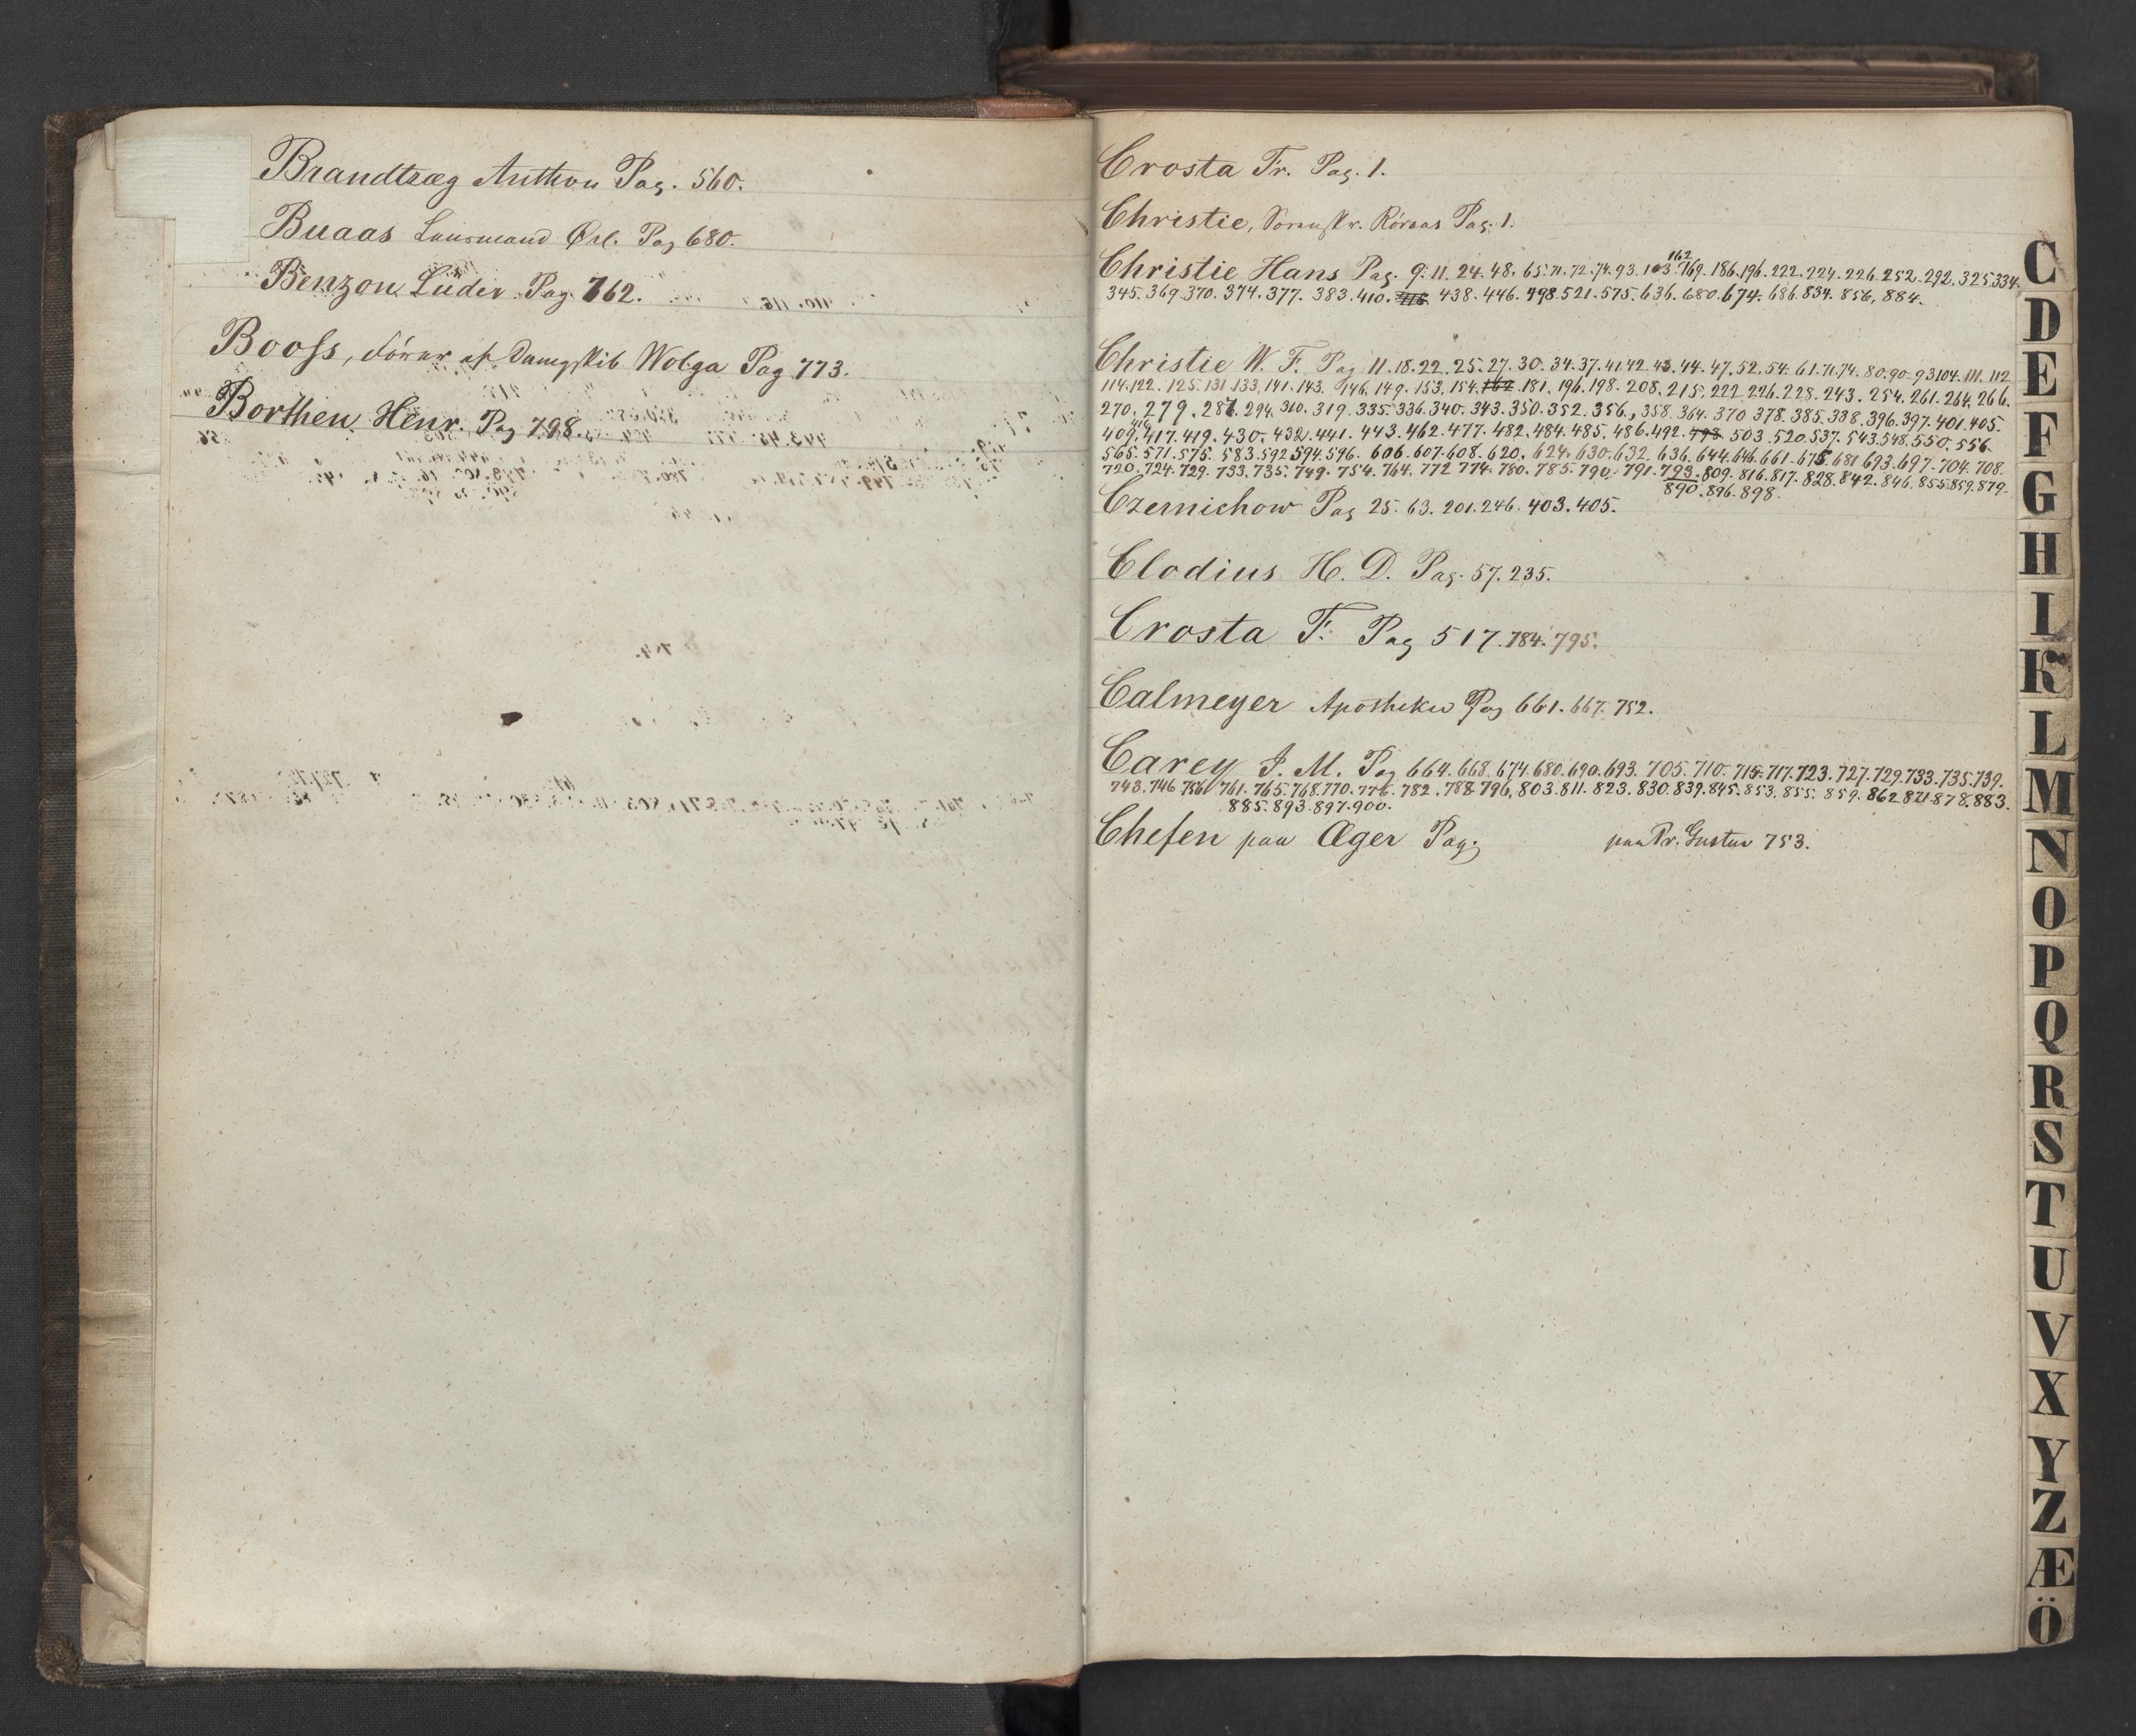 Brandtzæg Anthon Pag. 560.
Buaas Lensmand Ørl. Pag 680.
Benzon Lüder Pag. 762.
Booss, Fører af Dampskib Wolga Pag 773.
Borthen Henr. Pag 798.
Crosta Fr. Pag. 1.
Christie, Sorenskr. Röraas Pag. 1.
162
Christie Hans Pag. 9. 11. 24. 48. 65. 71. 72. 74. 93. 103. 169. 186. 196. 222. 224. 226. 252. 292. 325. 334.
345. 369. 370. 374. 377. 383. 410. 438. 446. 498. 521. 575. 636. 680. 674. 686. 834. 856, 884.
Christie W. F. Pag 11. 18. 22. 25. 27. 30. 34. 37. 41. 42. 43. 44. 47. 52. 54. 61. 71. 74. 80. 90. 93. 104. 111. 112
114. 122. 125. 131. 133. 141. 143. 146. 149. 153. 154. 162. 181. 196. 198. 208. 215. 222. 226. 228. 243. 254. 261. 264. 266.
270. 279. 287. 294. 310. 319. 335. 336. 340. 343. 350. 352. 356., 358. 364. 370 378. 385. 388. 396. 397. 401. 405.
416
409. 417. 419. 430. 432. 441. 443. 462. 477. 482. 484. 485. 486. 492. 498. 503. 520. 537. 543. 548. 550. 556.
565. 571. 575. 583. 592. 594. 596. 606. 607. 608. 620. 624. 630. 632. 636. 644. 646. 661. 675. 681. 693. 697. 704. 708.
720. 724. 729. 733. 735. 749. 754. 764. 772 774. 780. 785. 790. 791. 793. 809. 816. 817. 828. 842. 846. 855. 859. 879.
890. 896. 898.
Czernichow Pag 25. 63. 201. 246. 403. 405.
Clodius H. D. Pag. 57. 235.
Crosta F. Pag 517. 784. 795.
Calmeyer Apotheker Pag 661. 667. 752.
Carey J. M. Pag 664. 668. 674. 680. 690. 693. 705. 710. 715. 717. 723. 727. 729. 733. 735. 739.
743. 746 756 761. 765. 768. 770. 776. 782. 788. 796, 803. 811. 823. 830. 839. 845. 853. 855. 859. 862. 871. 878. 883.
885. 893. 897. 900.
Chefen paa Æger Pag. paa Pr. Gustav 753.
C
D
E
F
G
H
I
K
L
M
N
O
P
Q
R
S
T
U
V
X
Y
Z
Æ
Ö